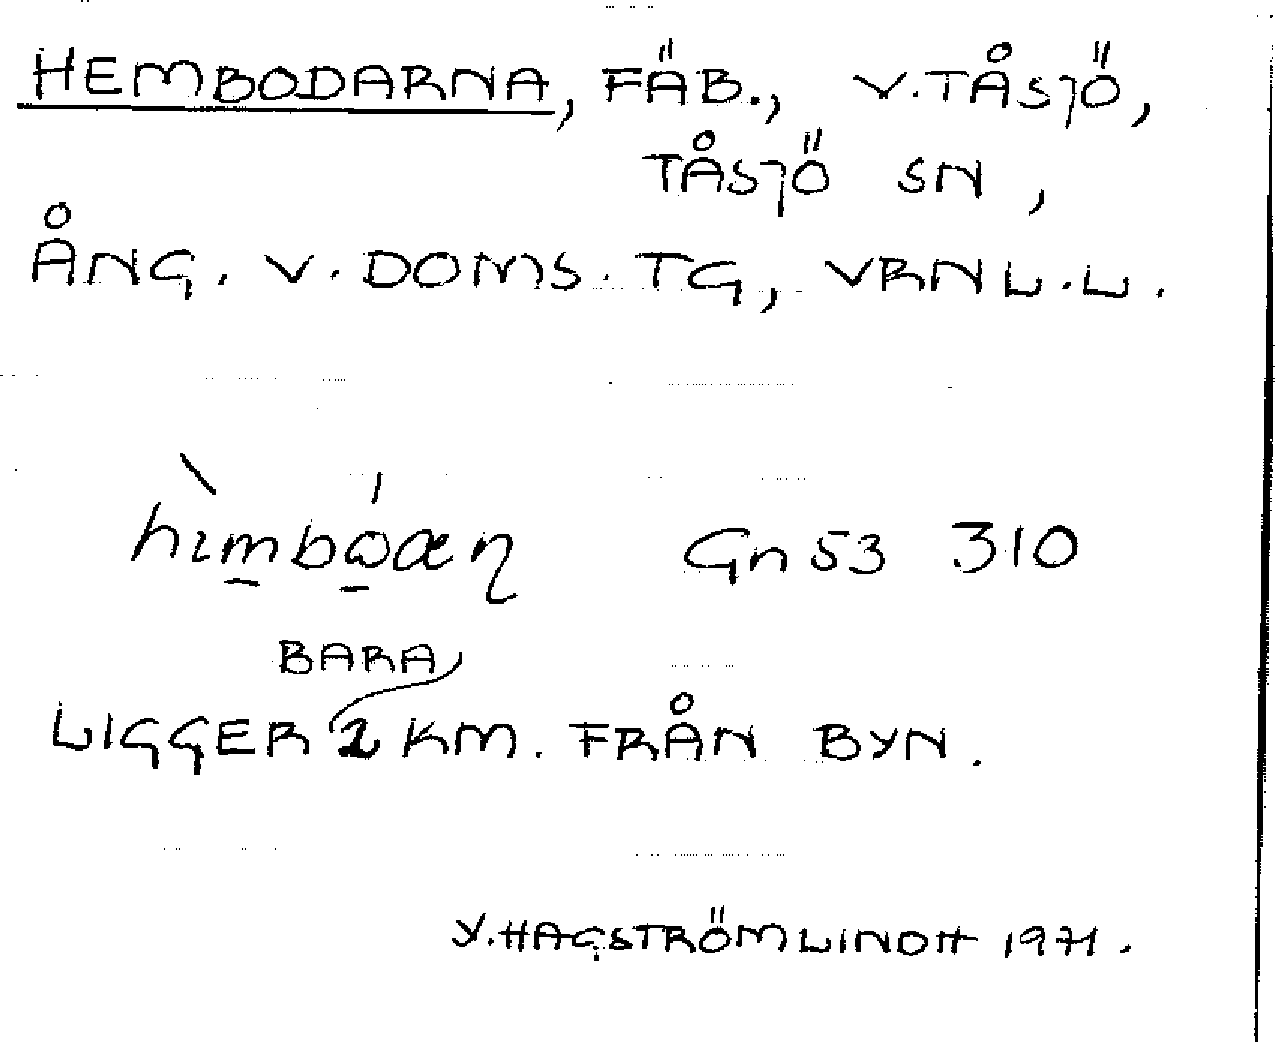 HEMBODARNA, FÄB., V.TÅSJÖ,
TÅSJÖ SN,
ÅNG. V. DOMS. TG, VRNL.L.
Gn 53 310
BARA
LIGGER 2 KM. FRÅN BYN.
Y. HAGSTRÖM LINDH 1971.